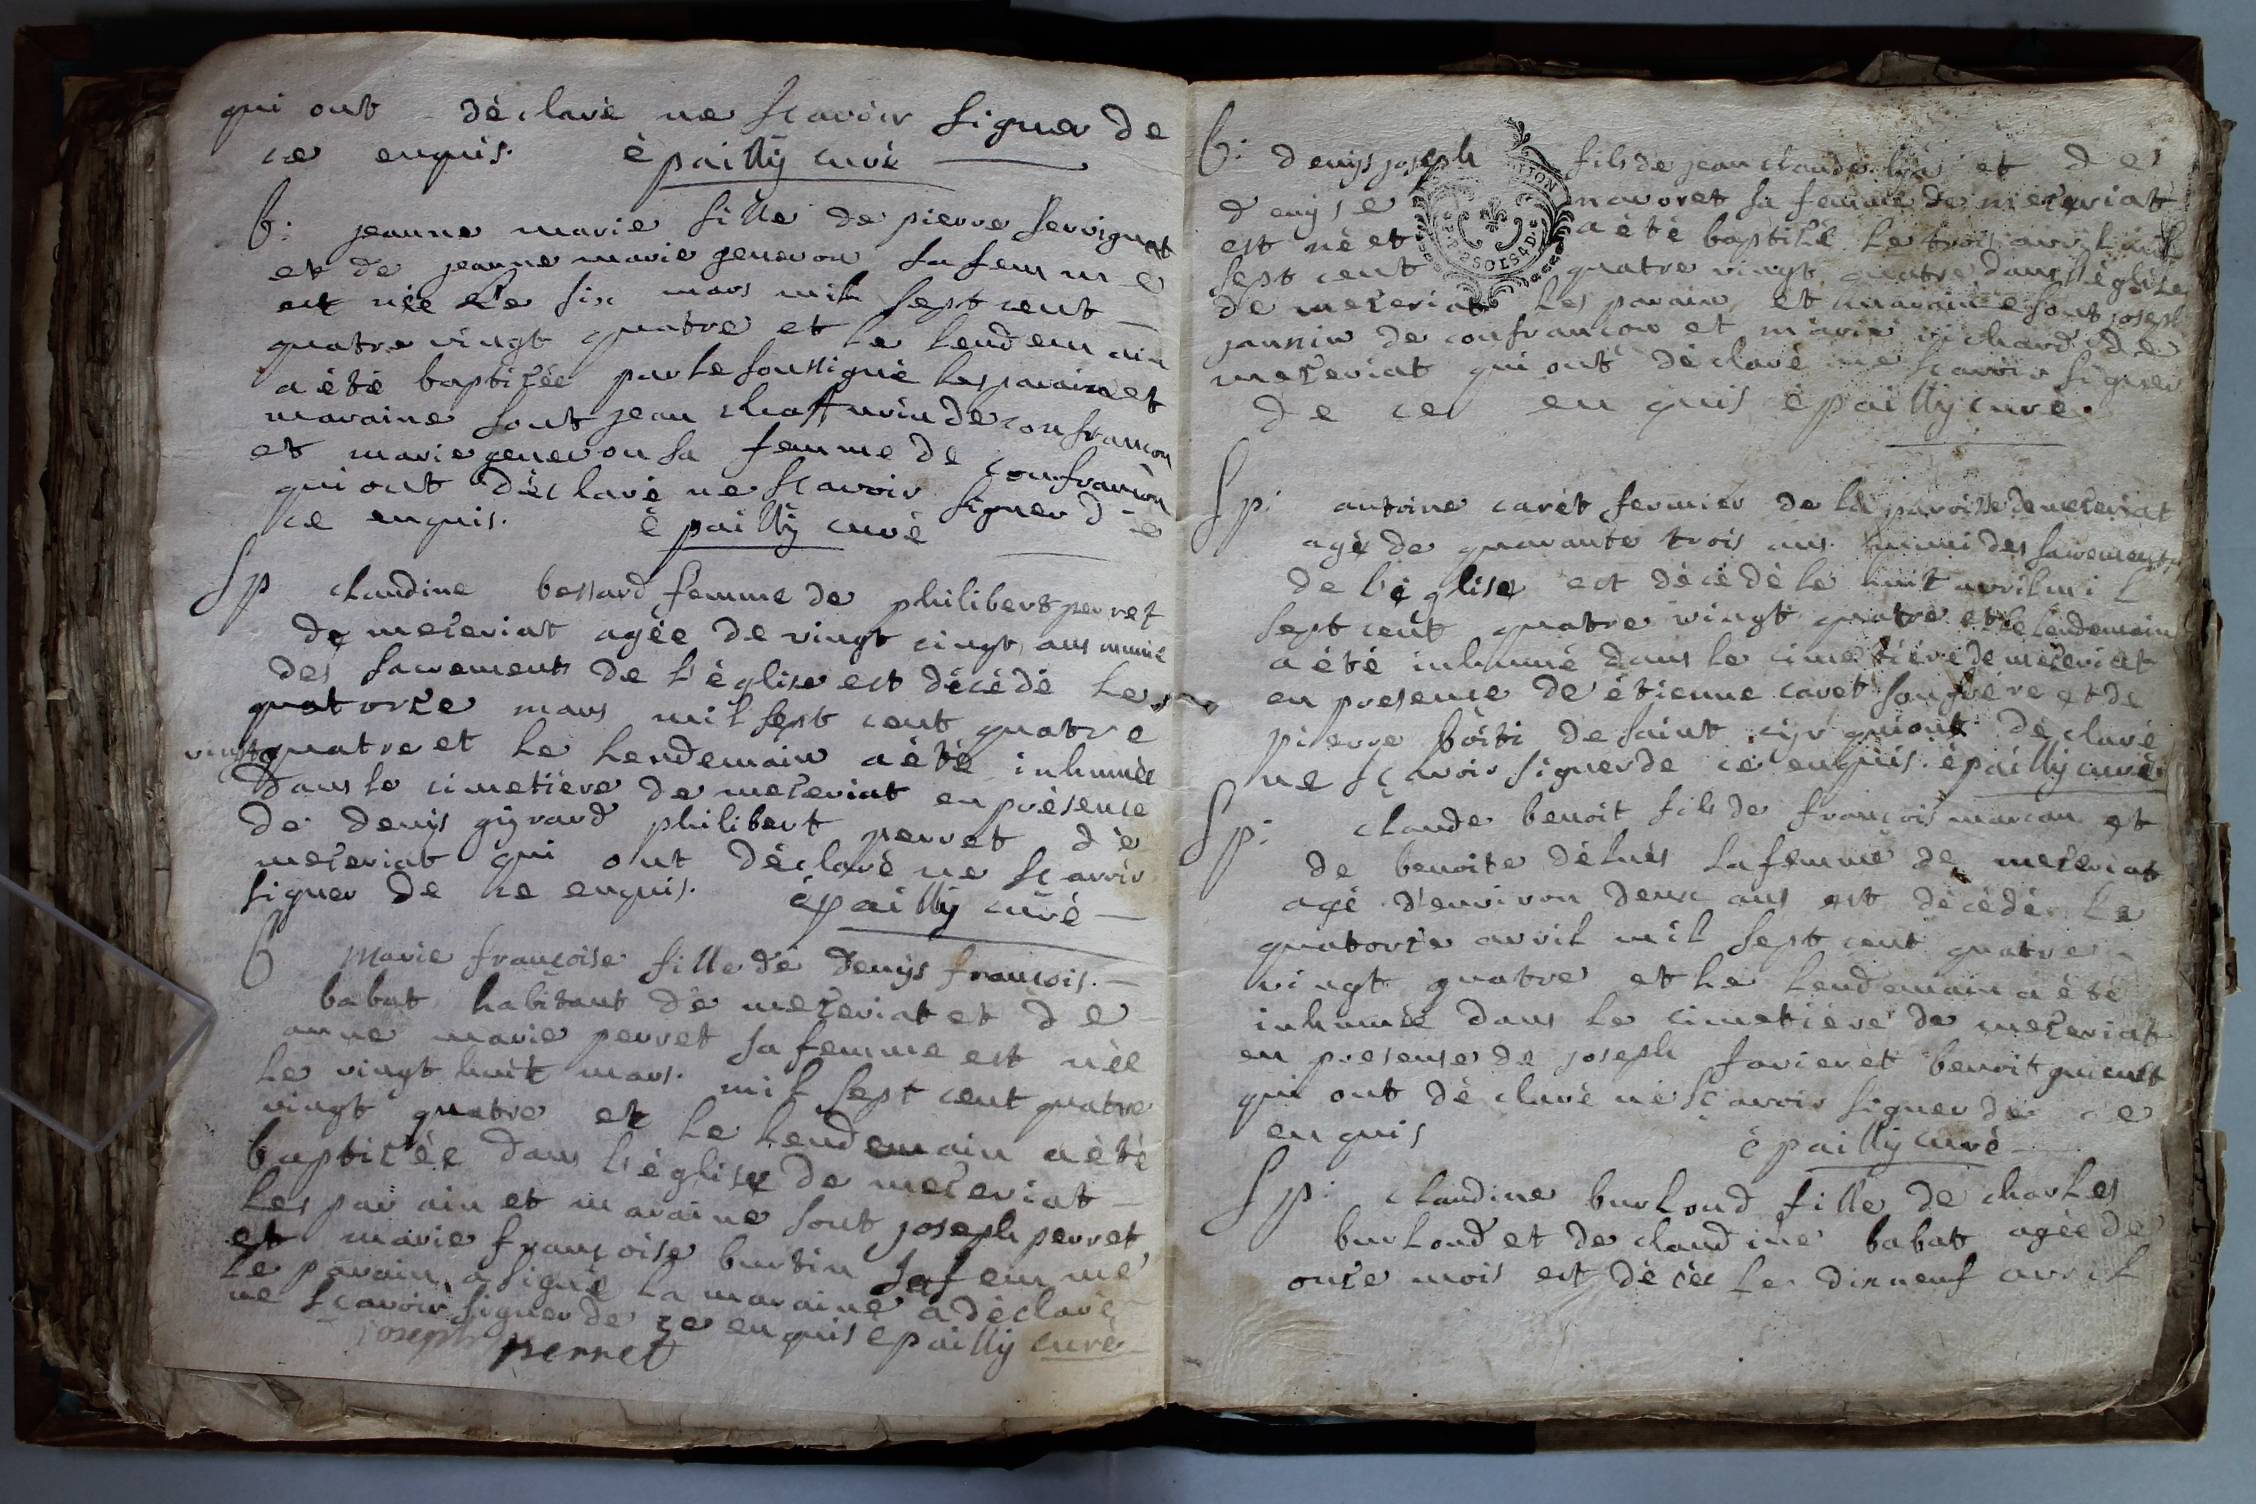 qui ont déclaré ne scavoir signer de
ce enquis. épailly curé
b: jeanne marie fille de pierre servignat
et de jeanne marie genevon sa femme
est née le six mars mil sept cent
quatre vingt quatre et le lendemain
a été baptisée par le soussigné les parain et
maraine sont jean de confrancon
et marie genevon sa femme de confrancon
qui ont déclaré ne scavoir signer de
ce enquis. épailly curé
Sp claudine bessard femme de philibert perret
de mezeriat agée de vingt cinq ans munie
des sacrements de l'église est décédé le
quatorze mars mil sept cent quatre
vingt quatre et le lendemain a été inhumée
dans le cimetiere de mezeriat en présence
de denis gyrard philibert perret de
mezeriat qui ont déclaré ne scavoir
signer de ce enquis. épailly curé
b marie françoise fille de denys françois
babat habitant de mezeriat et de
anne marie perret sa femme est née
le vingt huit mars mil sept cent quatre
vingt quatre et le lendemain a été
baptizée dans l'église de mezeriat
les parain et maraine sont joseph perret
et marie françoise burtin sa femme
le parain a signé la maraine a déclaré
ne scavoir signer de ce enquis épailly curé
joseph perret
b: denys joseph fils de jean claude et de
denyse mavoret sa femme de mezeriat
est né et a été baptisé le trois avril mil
sept cent quatre vingt quatre dans l'église
de mezeriat les parain et maraine sont joseph
jannin de confrancon et marie richard de
mezeriat qui ont déclaré ne scavoir signer
de ce enquis épailly curé.
2 SOLS 4 D.
Sp: antoine carét fermier de la paroisse de mezeriat
agé de quarante trois ans muni des sacrements
de l'église est décédé le huit avril mil
sept cent quatre vingt quatre et le lendemain
a été inhumé dans le cimetiére de mezeriat
en presence de étienne caret son frére et de
pierre de saint cyr qui ont déclaré
ne sçavoir signer de ce enquis. épailly curé
Sp: claude benoit fils de françois marcau et
de benoite délués sa femme de mezeriat
agé d'environ deux ans est décédé le
quatorze avril mil sept cent quatre
vingt quatre et le lendemain a été
inhumée dans le cimetiére de mezeriat
en presense de joseph favier et benoit
qui ont déclaré ne sçavoir signer de ce
enquis épailly curé
Sp: claudine burloud fille de charles
burloud et de claudine babat agée de
onze mois est décée le dixneuf avril